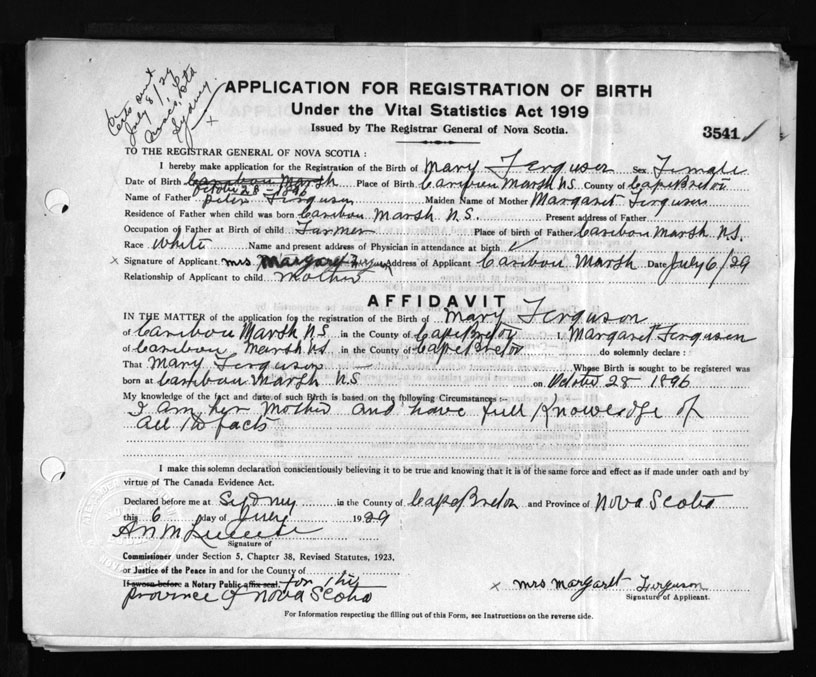 Certs sent
July 8/29
Sydney.
APPLICATION FOR REGISTRATION OF BIRTH
Under the Vital Statistics Act 1919
Issued by The Registrar General of Nova Scotia.
3541
TO THE REGISTRAR GENERAL OF NOVA SCOTIA :
I hereby make application for the Registration of the Birth of Mary Ferguson Sex Female
Date of Birth Caribou Marsh October 28 - 1896 Place of Birth Caribou Marsh N.S. County of Cape Breton
Name of Father Peter Ferguson Maiden Name of Mother Margaret Ferguson
Residence of Father when child was born Caribou Marsh N.S. Present address of Father
Occupation of Father at Birth of child Farmer Place of birth of Father Caribou Marsh N.S.
Race White Name and present address of Physician in attendance at birth ✓
x Signature of Applicant Mrs Margaret Ferguson Address of Applicant Caribou Marsh Date July 6/29
Relationship of Applicant to child Mother
AFFIDAVIT
IN THE MATTER of the application for the registration of the Birth of Mary Ferguson
of Caribou Marsh N.S. in the County of Cape Breton I, Margaret Ferguson
of Caribou Marsh N.S. in the County of Cape Breton do solemnly declare :
That Mary Ferguson Whose Birth is sought to be registered was
born at Caribou Marsh N.S on October 28 1896
My knowledge of the fact and date of such Birth is based on the following Circumstances :-
I am her Mother and have full Knowledge of
all facts
I make this solemn declaration conscientiously believing it to be true and knowing that it is of the same force and effect as if made under oath and by
virtue of The Canada Evidence Act.
Declared before me at Sydney in the County of Cape Breton and Province of Nova Scotia
this 6 day of July 1929
Signature of
Commissioner under Section 5, Chapter 38, Revised Statutes, 1923,
or Justice of the Peace in and for the County of
If sworn before a Notary Public affix seal. for the
Province of Nova Scotia
x Mrs Margaret Ferguson
Signature of Applicant.
For Information respecting the filling out of this Form, see Instructions on the reverse side.